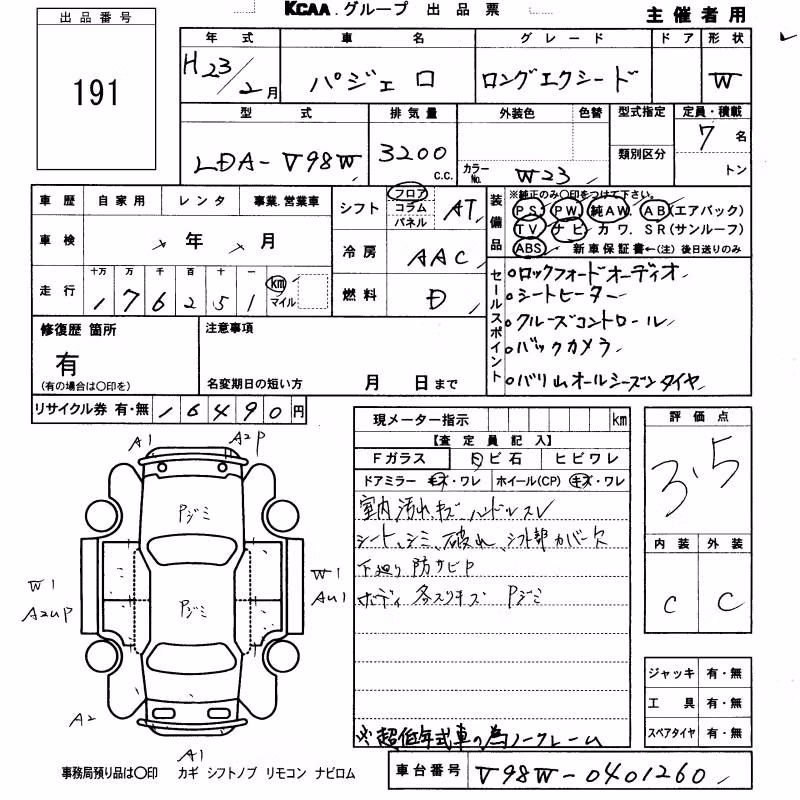 KCAA.グループ 出品票
主催者用
出品番号
191
年式 車名 グレード ドア 形状
H23/2月 パジェロ ロングエクシード W
型式 排気量 外装色 色替 型式指定 定員・積載
LDA-V98W 3200 c.c. カラーNo. W23 類別区分 7名
トン
車歴 自家用 レンタ 事業.営業車
シフト フロア コラム パネル AT
車検 年 月
冷房 AAC
走行 十万 万 千 百 十 一
176251 km マイル
燃料 D
装備品
※純正のみ〇印をつけて下さい。
PS. PW. 純AW. AB(エアバック)
TV ナビ カワ. SR(サンルーフ)
ABS 新車保証書←(注)後日送りのみ
セールスポイント
ロックフォードオーディオ
シートヒーター
クルーズコントロール
バックカメラ
バリ山オールシーズンタイヤ
修復歴 箇所
有
(有の場合は〇印を)
注意事項
名変期日の短い方 月 日まで
リサイクル券 有・無 16490円
現メーター指示 km
【査定員記入】
Fガラス 飛ビ石 ヒビワレ
ドアミラー キズ・ワレ ホイール(CP) キズ・ワレ
室内汚れ、キズ ハンドルスレ
シート、シミ、破れ、シフト部カバー欠
下廻り 防サビP
ボディ 各スリキズ Pジミ
※超低年式車の為ノークレーム
評価点
3.5
内装 外装
C C
ジャッキ 有・無
工具 有・無
スペアタイヤ 有・無
A1 A2P
Pジミ
Pジミ
W1 A2UP
W1 AU1
A2
A1
事務局預り品は〇印 カギ シフトノブ リモコン ナビロム
車台番号 V98W-0401260